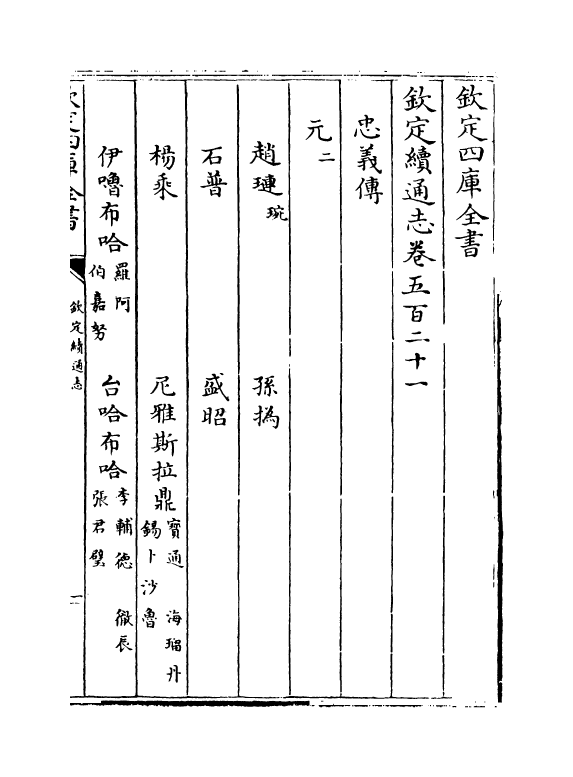 欽定四庫全書
欽定續通志卷五百二十一
忠義傳
元二
趙璉 琬 孫撝
石普 盛昭
楊乘 尼雅斯拉鼎 寶通 海瑠丹 錫卜沙魯
伊嚕布哈 羅阿 伯嘉努 台哈布哈 李輔德 徹辰 張君璧
欽定四庫全書 欽定續通志 一